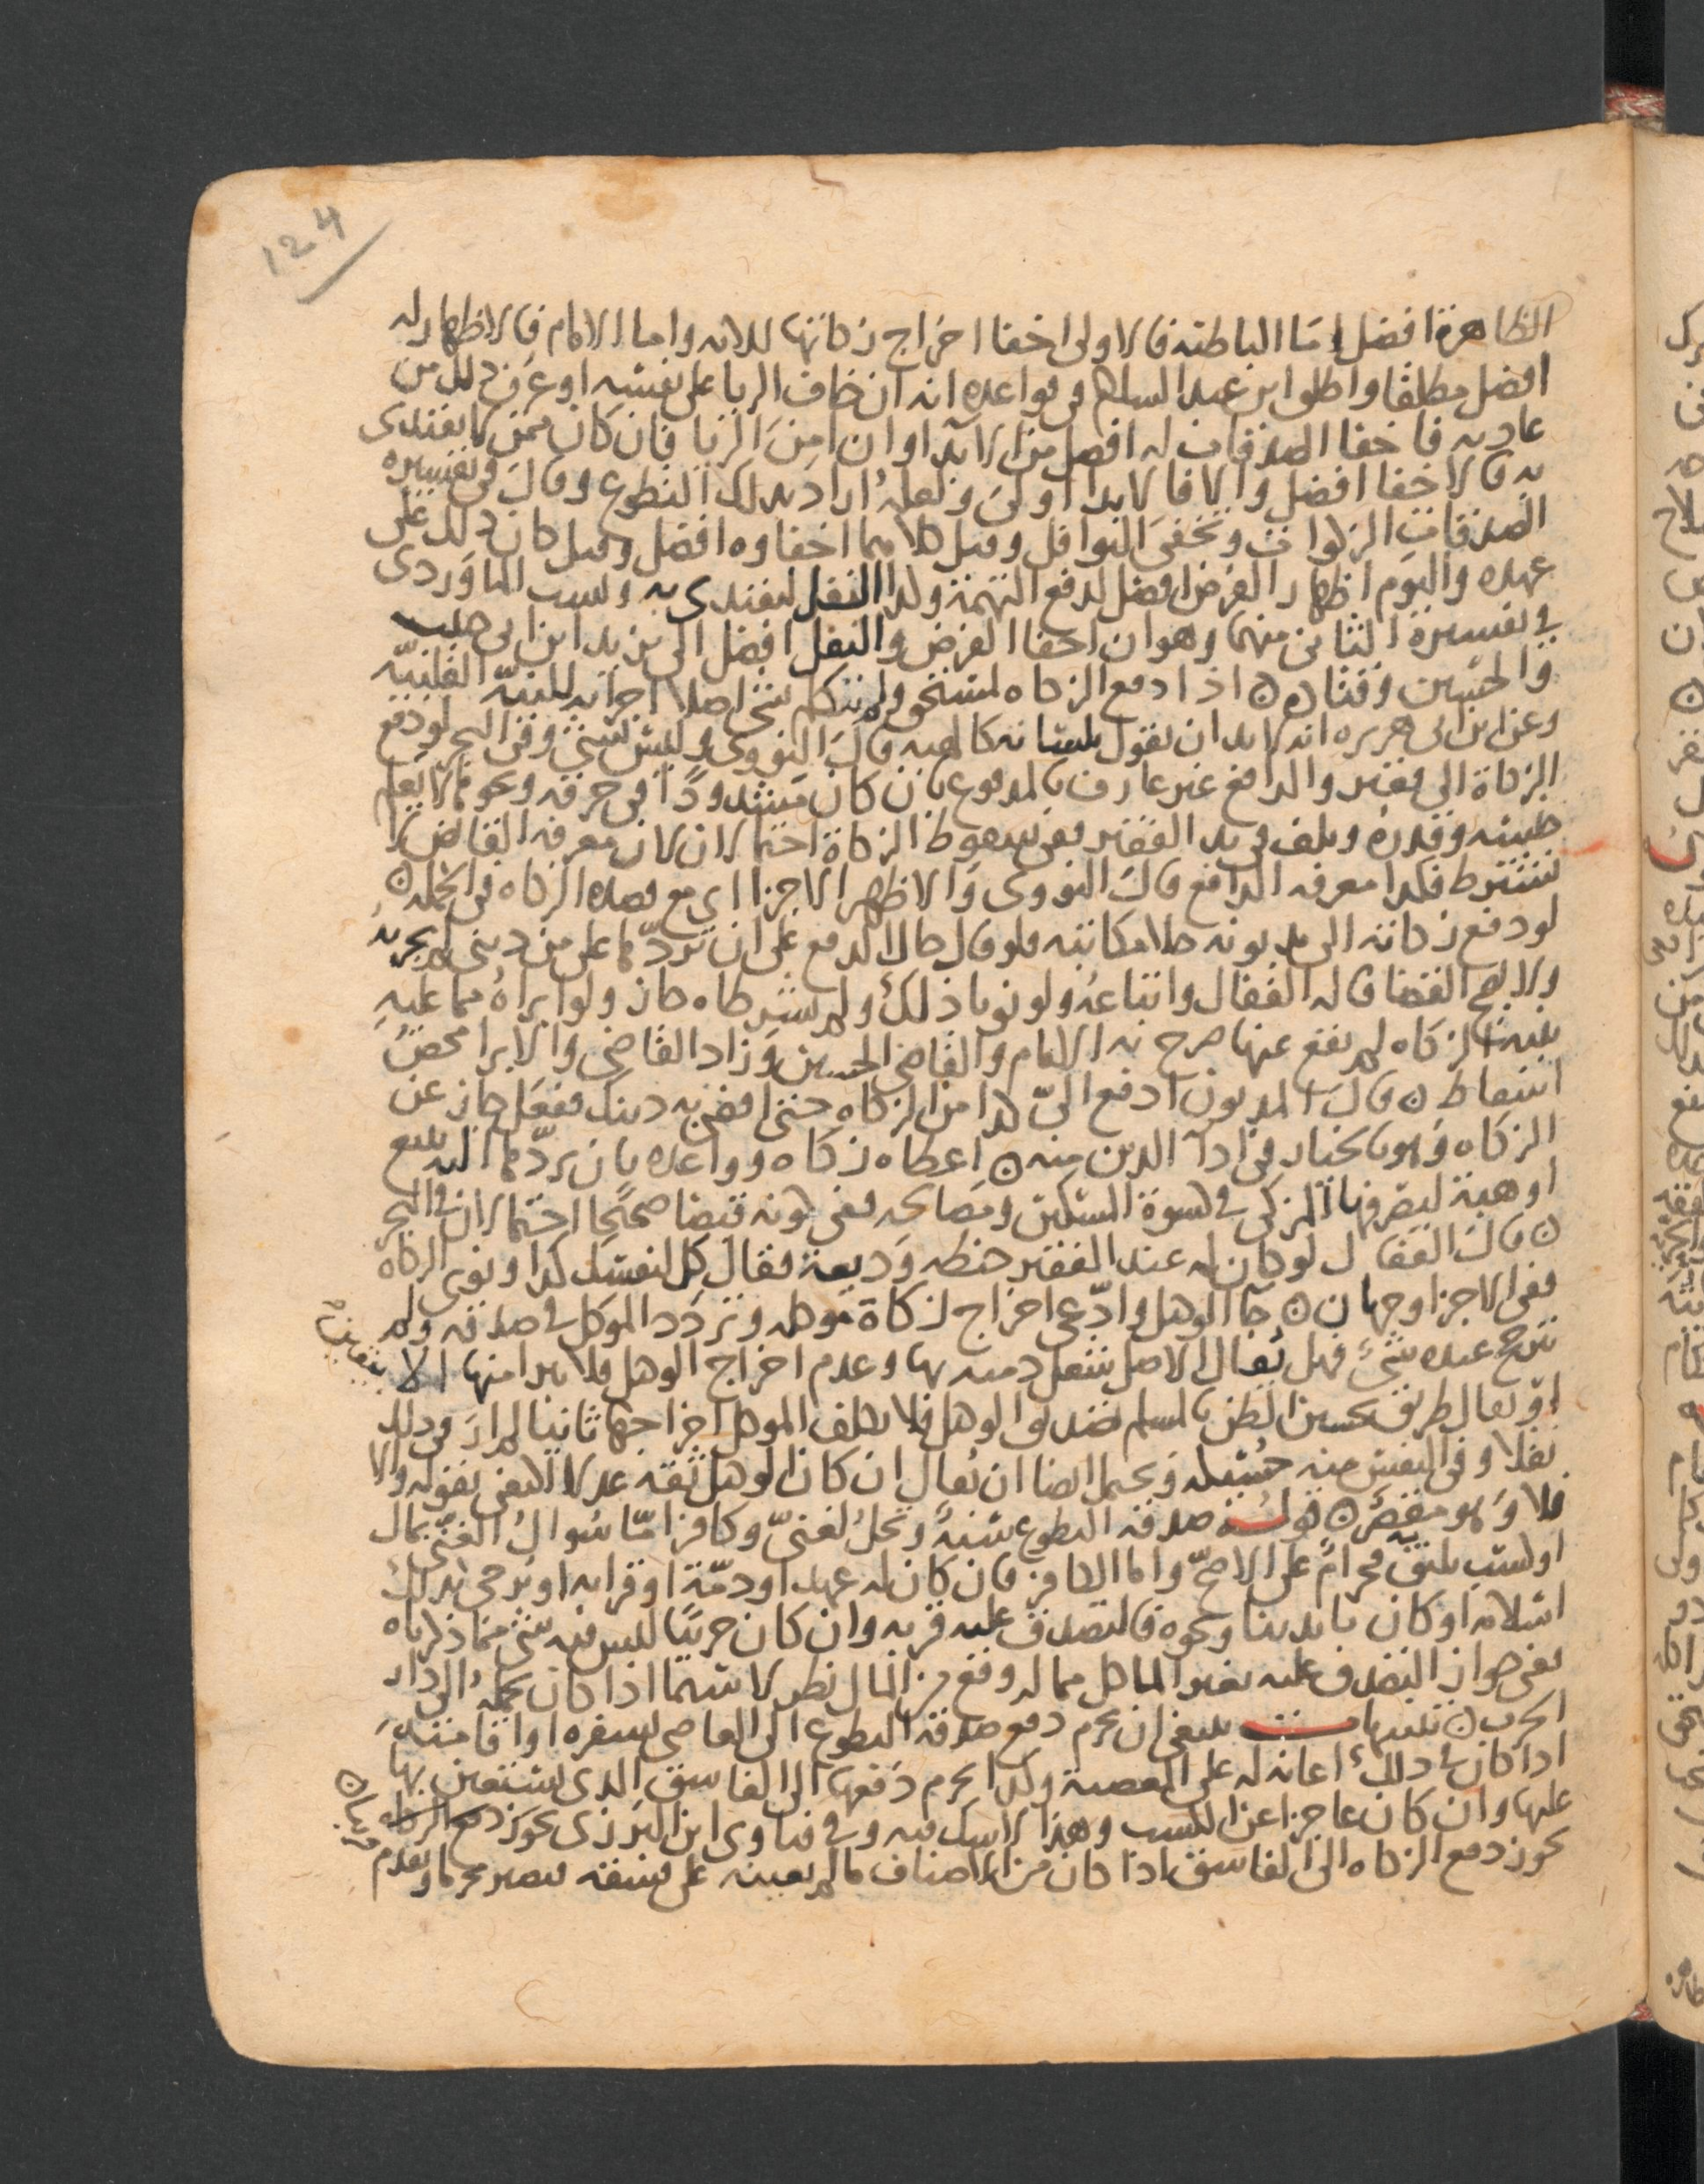 124
الظاهرة افضل اما الباطنة فالاولى اخفا اخراج زكاتها للاىه واما الامام فالاظهار له
افضل مطلقا واطلق ابن عبد السلام فى قواعده انه ان خاف الريا على نفسه او عرف ذلك من
عادته فاخفا الصدقات له افضل من الابدا وان امن الريا فان كان ممن لا يقتدى
به فالاخفا افضل والا فالابدا اولى ولعله اراد بذلك التطوع وقال فى تفسيره
الصدقات الزكوات وتخفى النوافل وقيل كلاهما اخفاوه افضل وقيل كان ذلك على
عهده واليوم اظهار الفرض افضل لدفع التهمة وكذا النفل ليقتدى به ونسب الماوردى
فى تفسيره الثانى منهما وهو ان اخفا الفرض والنفل افضل الى يزيد ابن ابى حبيب
والحسين وقتاده اذا دفع الزكاه لمستحق ولم يتكلم بشى اصلا اجزاته للنية القلبية
وعن ابن ابى هريره انه لابد ان يقول بلسانه كالهبه قال النووى وليس بشى وفى البحر لو دفع
الزكاة الى فقير والدافع غير عارف بالمدفوع بان كان مشدودا فى خرقه ونحوها لا يعلم
جنسه وقدره وتلف فى يد الفقير ففى سقوط الزكاة احتمالان لان معرفه القابض لا
تشترط فكذا معرفه الدافع قال النووى والاظهر الاجزا اى مع قصده الزكاه فى الجمله
لو دفع زكاته الى مديونه حلا مكاتبته فلو قال حال الدفع على ان تردها على من دينى لم يجزيه
ولا يصح القضا قاله القفال واتباعه ولو نويا ذلك ولم يشترطاه جاز ولو ابراه مما عليه
بنيه الزكاه لم يقع عنها صرح به الامام والقاضى الحسين وزاد القاضى والابرا محض
اسقاط قال المديون ادفع الى كذا من الزكاه حتى اقضى به دينك ففعل جاز عن
الزكاه وهو بالخيار فى ادا الدين منه اعطاه زكاه وواعده بان يردها اليه ببيع
او هبة ليصرفها المزكى فى كسوة المسكين ومصالحه ففى كونه قبضا صحيحا احتمالان فى البحر
قال القفال لو كان له عند الفقير حنطه وديعة فقال كل لنفسك كذا ونوى الزكاه
ففى الاجزا وجهان جا الوكيل وادعى اخراج زكاة موكله وتردد الموكل فى صدقه ولم
يترجح عنده شى فهل يقال الاصل شغل ذمته بها وعدم اخراج الوكيل فلا يبرا منها الا بيقين
او يقال طريق تحسين الظن بالمسلم تصديق الوكيل فلا يكلف الموكل اخراجها ثانيا لم ار فى ذلك
نقلا وفى النفس منه حسيكه ويحتمل ايضا ان يقال ان كان الوكيل ثقة عدلا اكتفى بقوله والا
فلا وهو مقصر قوله صدقه التطوع سنة وتحل لغنى وكافر اما سوال الغنى بمال
او كسب يليق به فحرام على الاصح واما الكافر فان كان له عهد او ذمة او قرابه او يرجى بذلك
اسلامه او كان بايدينا ونحوه فالتصدق عليه قربه وان كان حربيا لليس فيه شى مما ذكرناه
ففى جواز التصدق عليه بغير الماكل مما له وقع من المال نظر لا سيما اذا كان يحمله الى دار
الحرب تنبيهات ينبغى ان يحرم دفع صدقة التطوع الى العاصى بسفره او اقامته
اذا كان فى ذلك اعانه له على المعصية وكذا يحرم دفعها الى الفاسق الذى يستعين بها
عليها وان كان عاجزا عن الكسب وهذا لا شك فيه وفى فتاوى ابن البزرى يجوز دفع الزكاه قربان
يجوز دفع الزكاه الى الفاسق اذا كان من الاصناف ما لم يعينه على فسقه فيصير محرما وتقدم